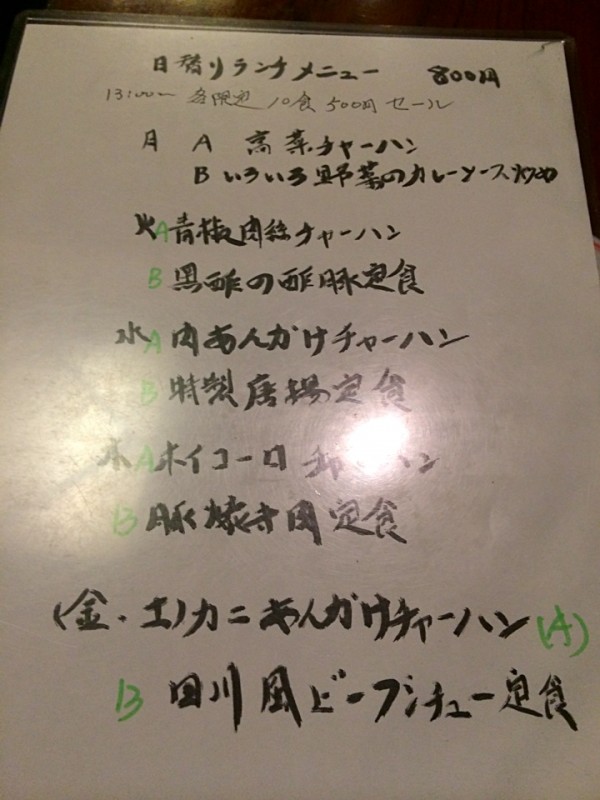 日替りランチメニュー 800円
13:00〜 各限定 10食 500円 セール
月 A 高菜チャーハン
B いろいろ野菜のカレーソース炒め
火A青椒肉絲チャーハン
B 黒酢の酢豚定食
水A 肉あんかけチャーハン
B 特製唐揚定食
木Aホイコーロ チャーハン
B 豚焼き肉定食
(金・土)カニあんかけチャーハン(A)
B 四川風ビーフシチュー定食